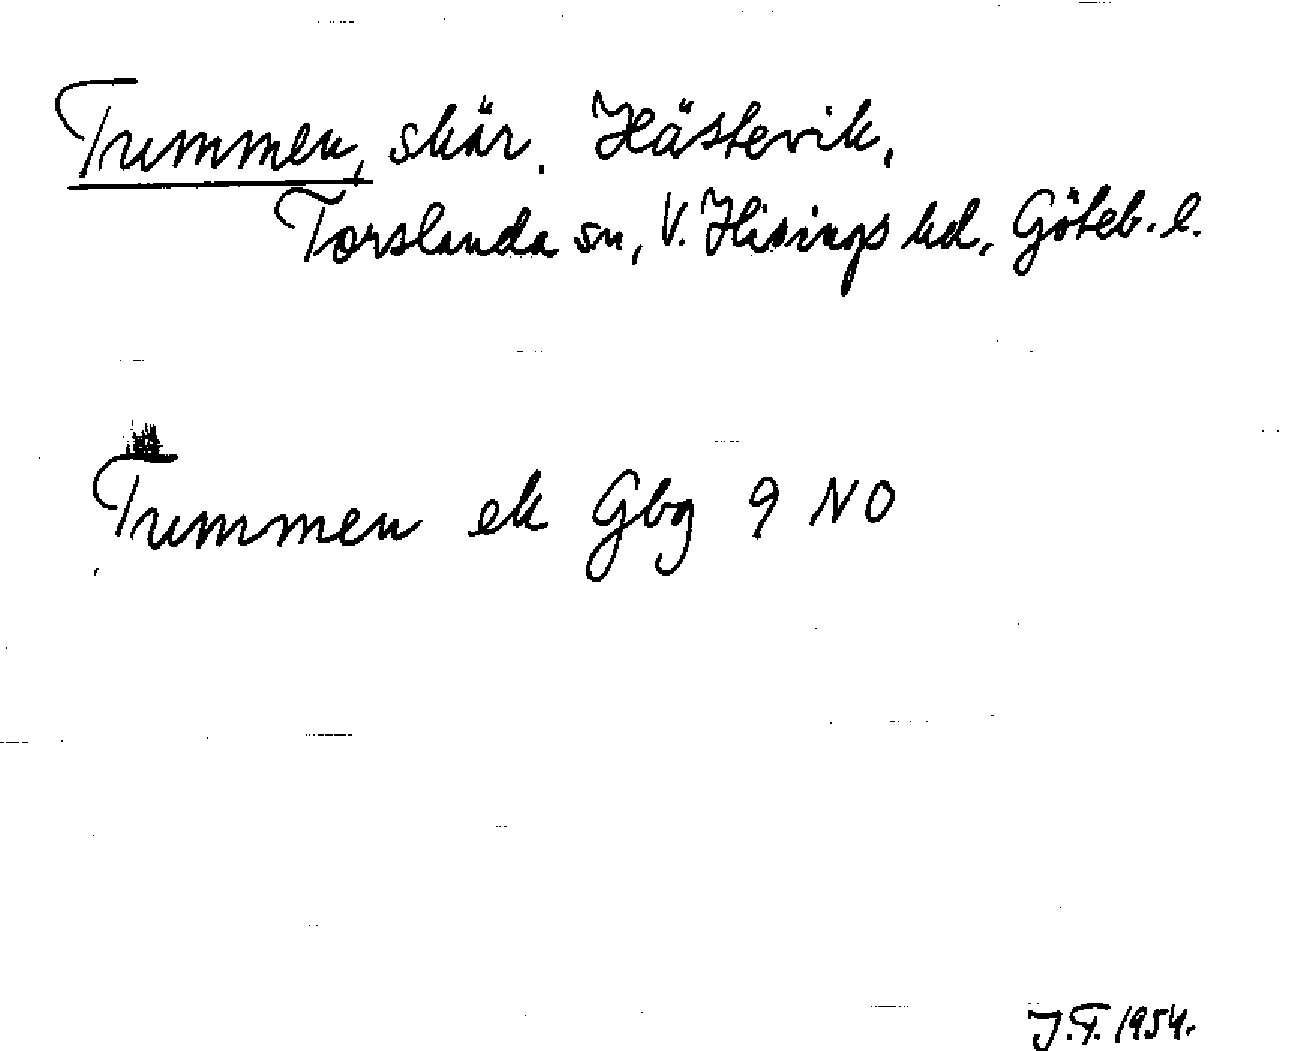 Trummen, skär. Hästevik,
Torslanda sn, V. Hisings hd, Göteb. l.
Trummen ek Gbg 9 NO
J.T. 1954.